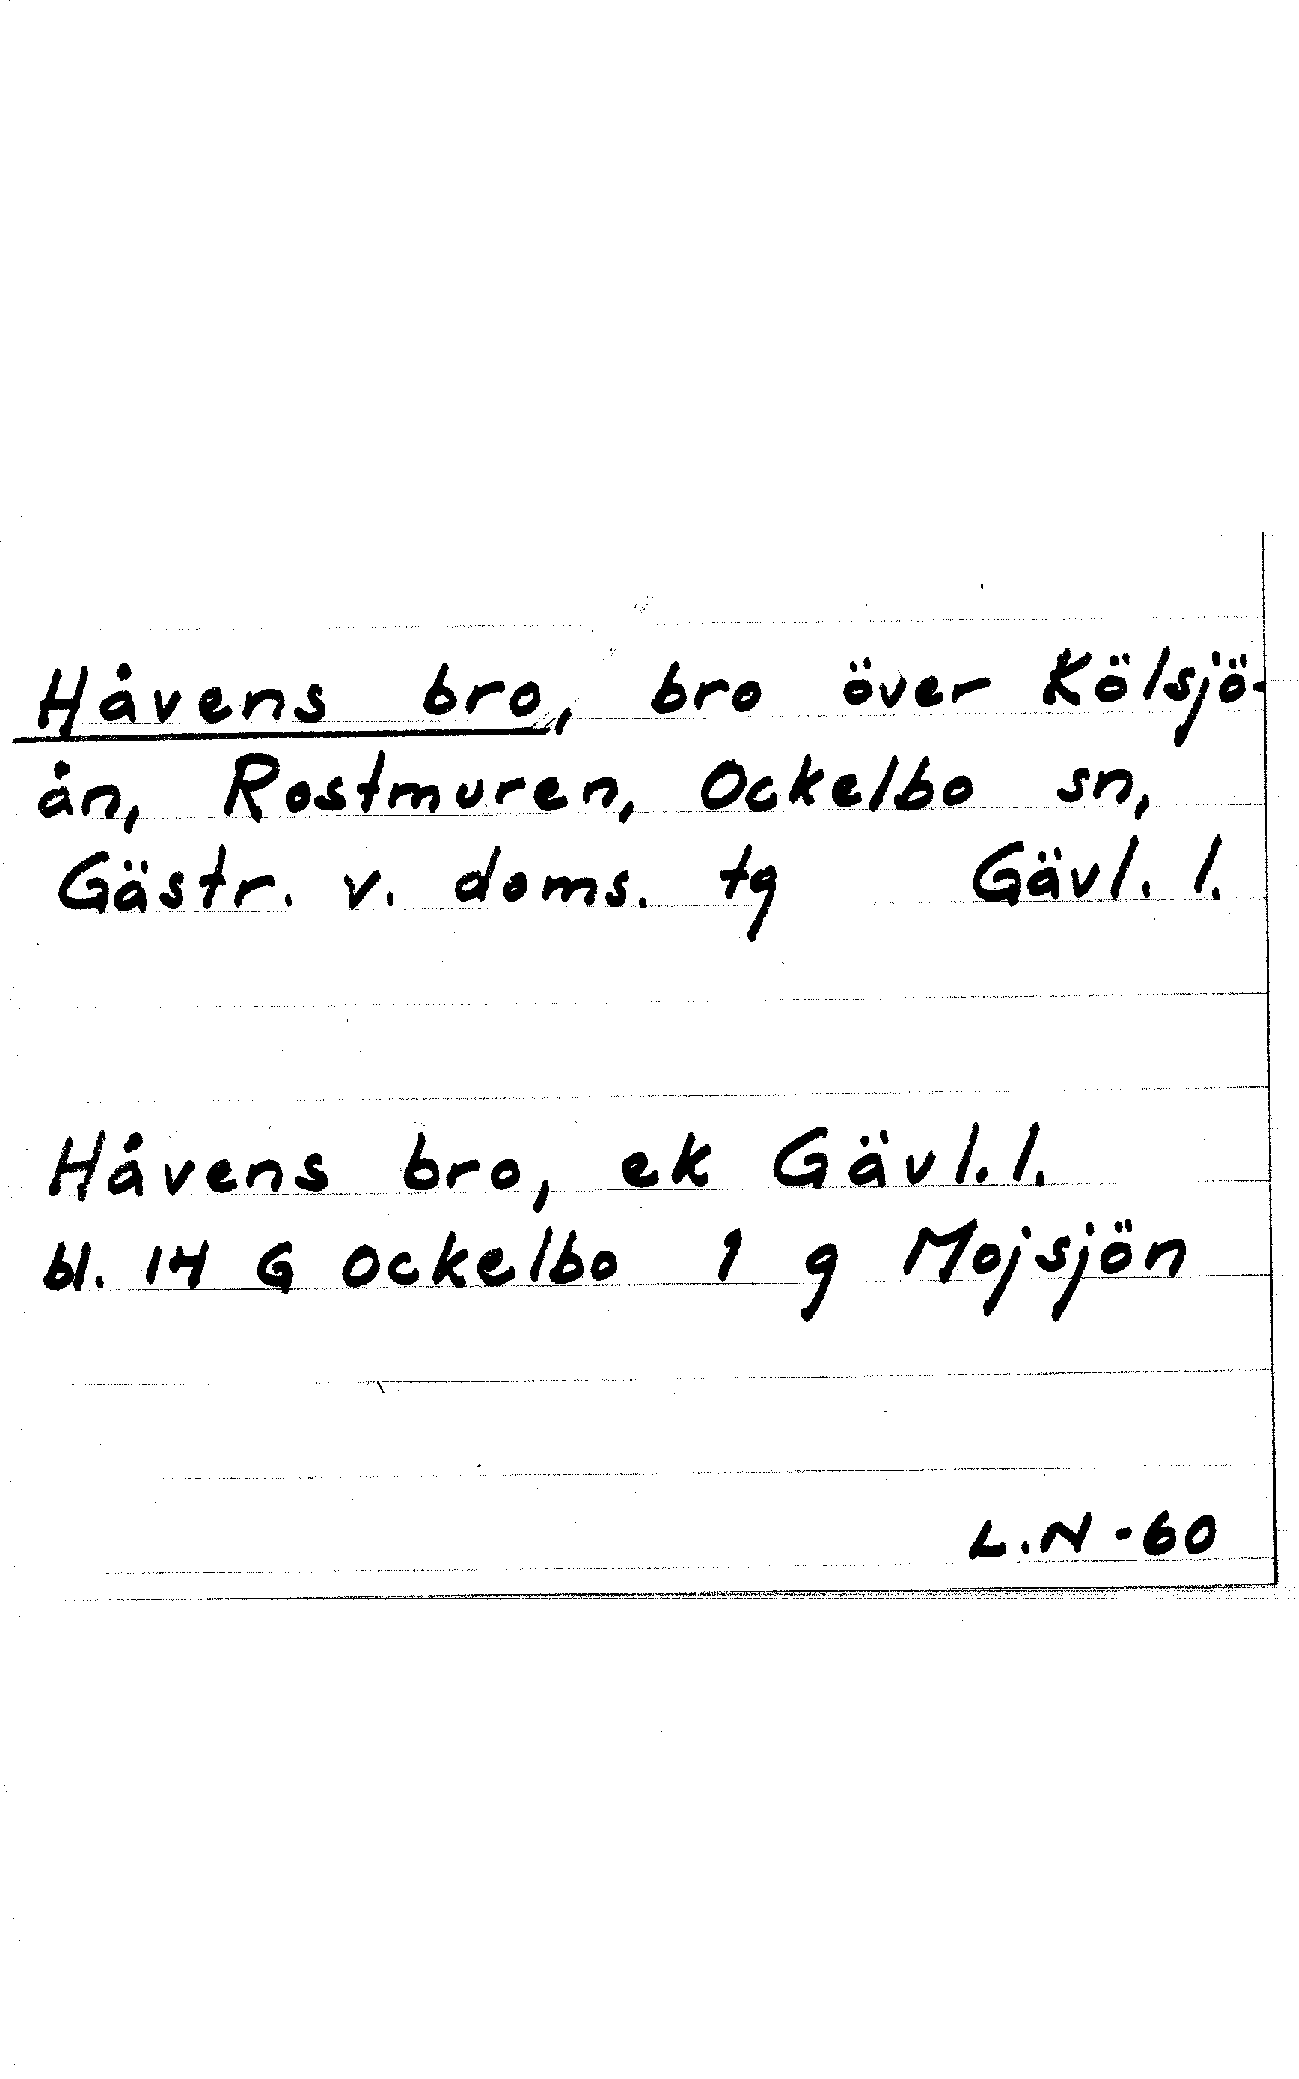 Håvens bro, bro över Kölsjö-
ån, Rostmuren, Ockelbo sn,
Gästr. v. doms. tg Gävl. l.
Håvens bro, ek Gävl. l.
bl. 14 G Ockelbo 1 g Mojsjön
L.N -60